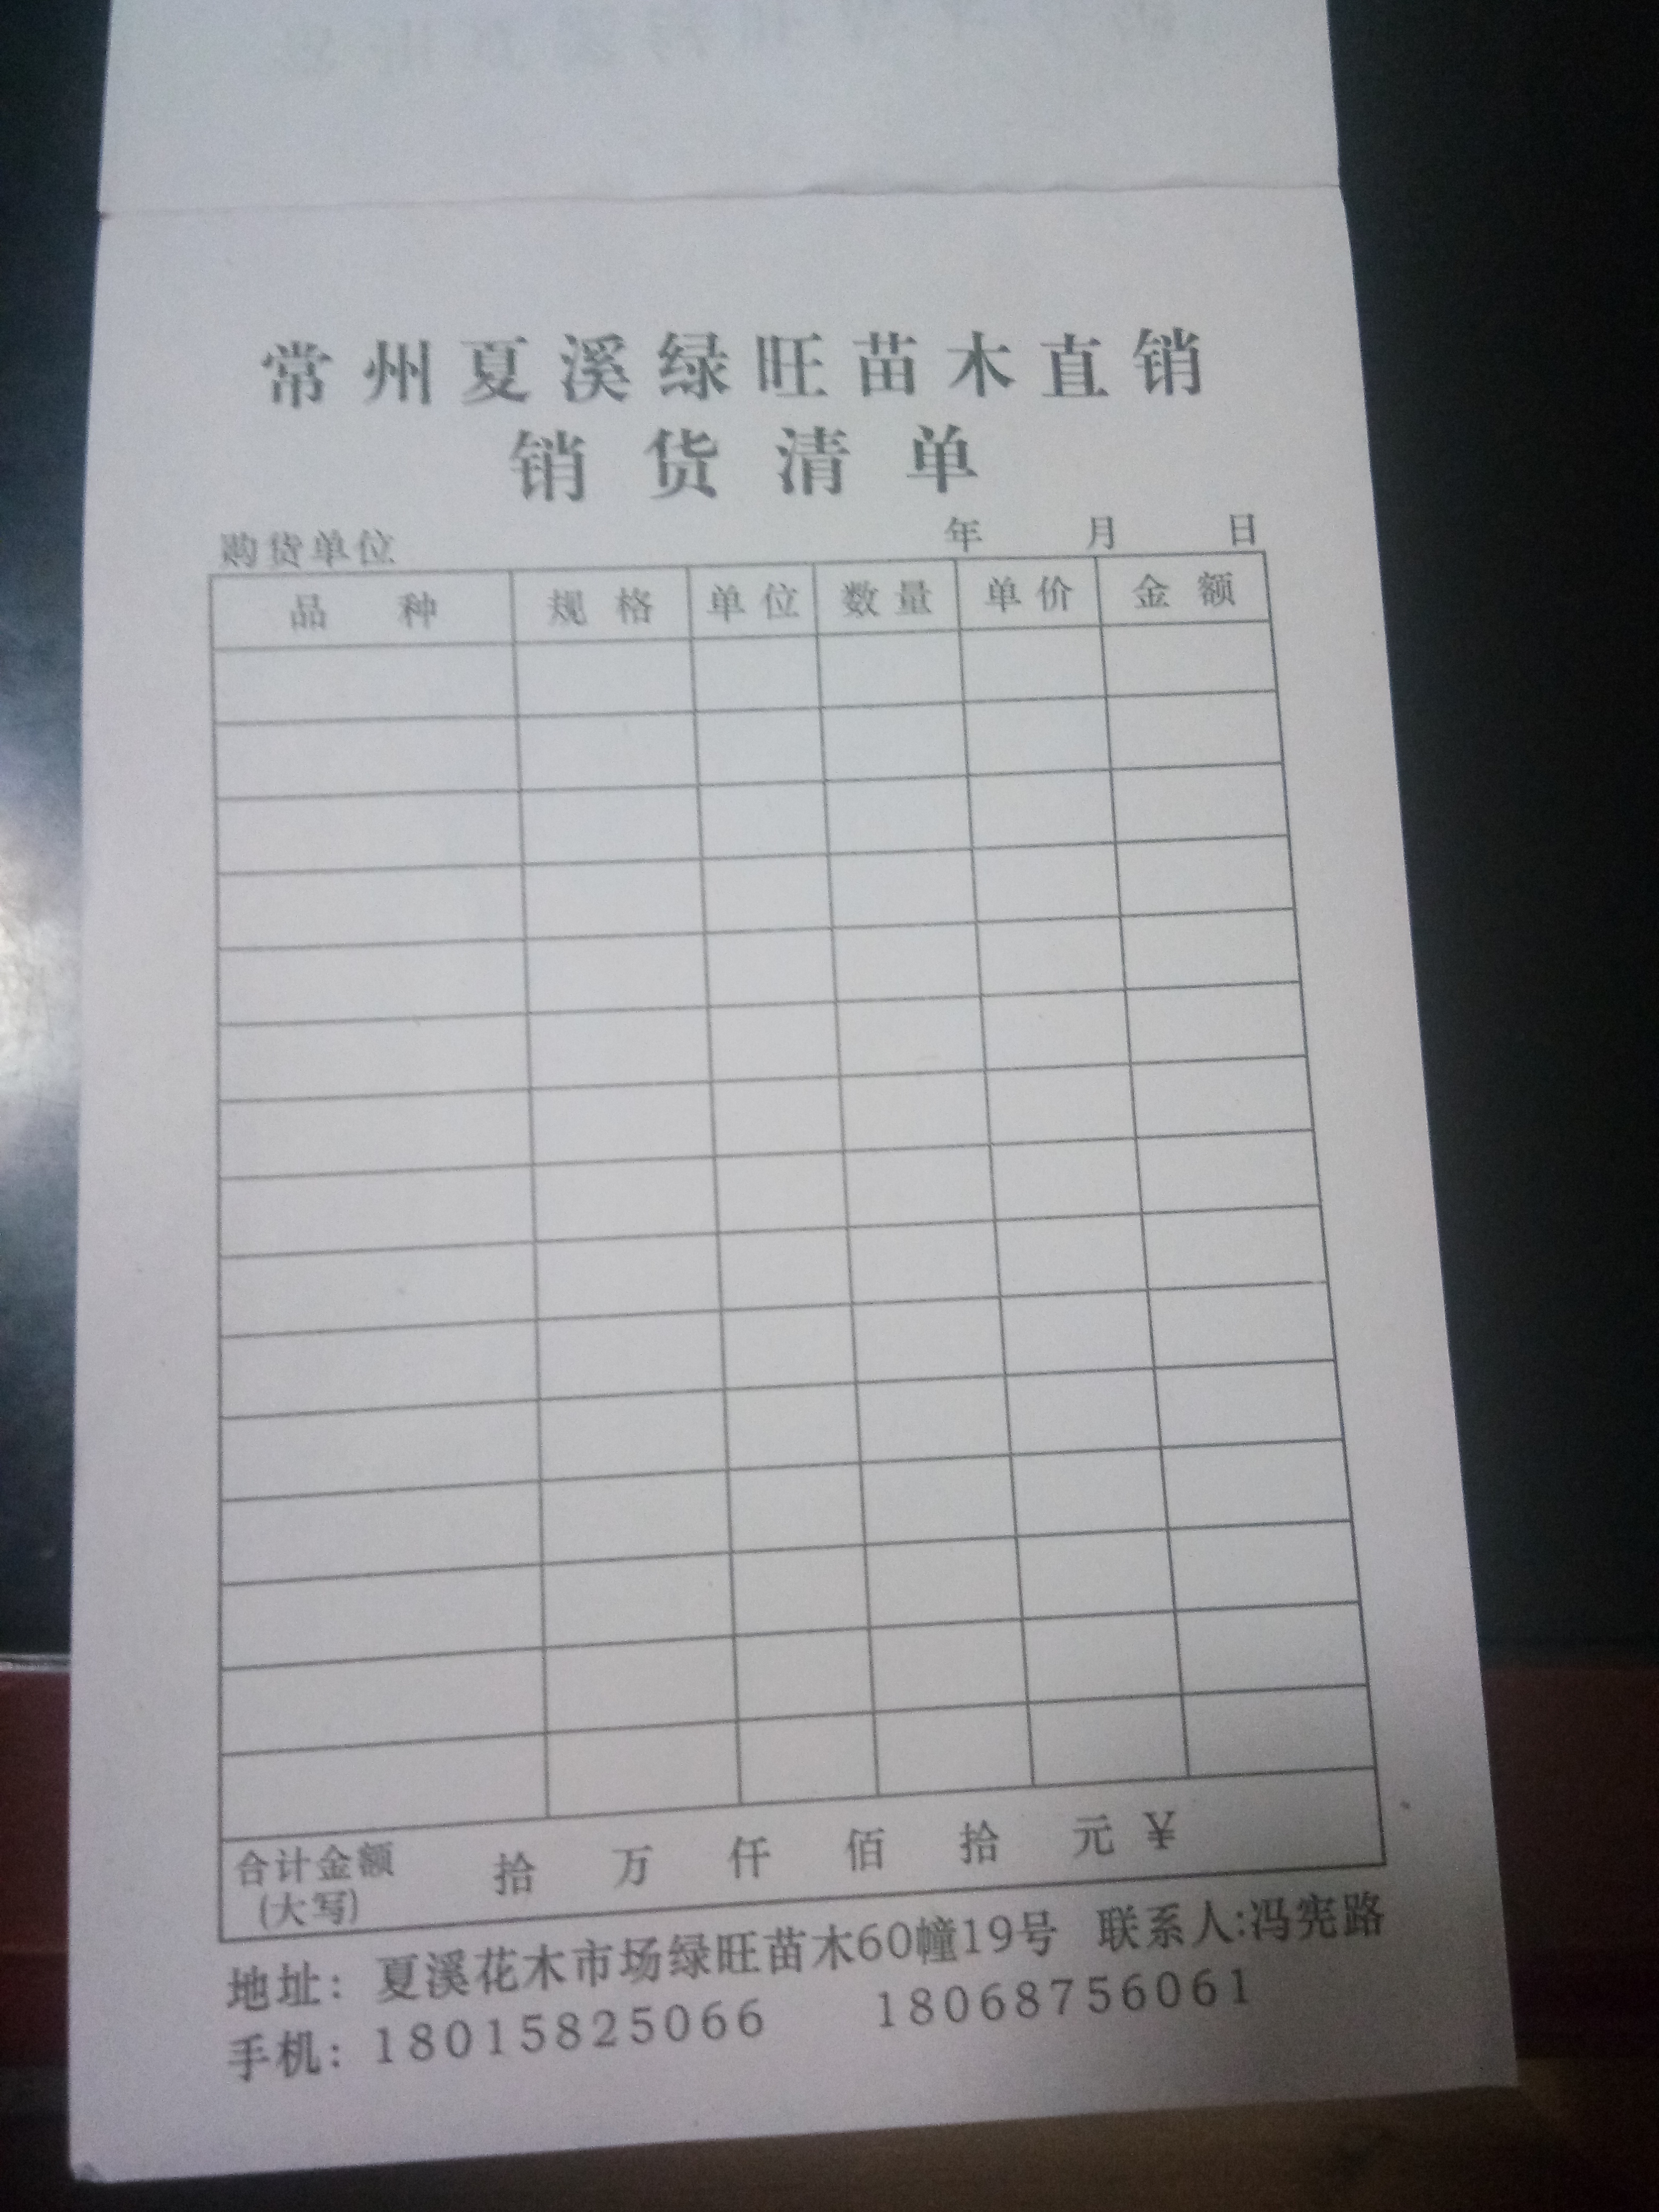 常州夏溪绿旺苗木直销
销货清单
购货单位 年 月 日
品种 规格 单位 数量 单价 金额
合计金额 拾 万 仟 佰 拾 元 ¥
(大写)
地址：夏溪花木市场绿旺苗木60幢19号 联系人:冯宪路
手机：18015825066 18068756061